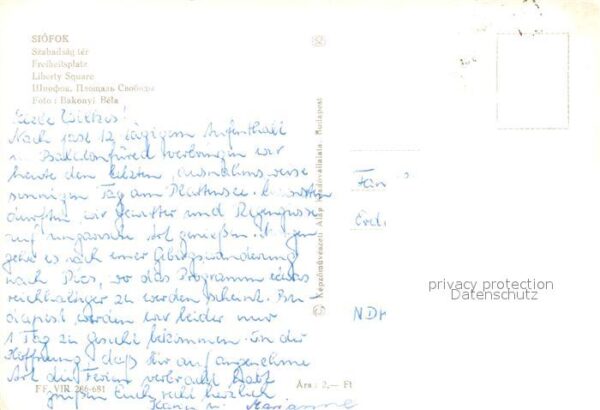 SIÓFOK
Szabadság tér
Freiheitsplatz
Liberty Square
Шиофок, Площадь Свободы
Foto: Bakonyi Béla
Nach fast 12 tägigem Aufenthalt
in Balatonfüred verbringen wir
heute den letzten, ausnahmsweise
sonnigen Tag am Plattensee.
durften wir Gewitter und Regengüsse
auf ungarische Art genießen.
geht es nach einer Gebirgswanderung
nach Pécs, wo das Programm etwas
reichhaltiger zu werden scheint. Bu-
dapest werden wir leider nur
1 Tag zu Gesicht bekommen. In der
Hoffnung, daß Ihr auf angenehme
Art die Ferien verbracht habt
grüßen Euch recht herzlich
u. Marianne
FF VIR 266-681
Ára: 2,— Ft
Képzőművészeti Alap Kiadóvállalata, Budapest
Fam
privacy protection
Datenschutz